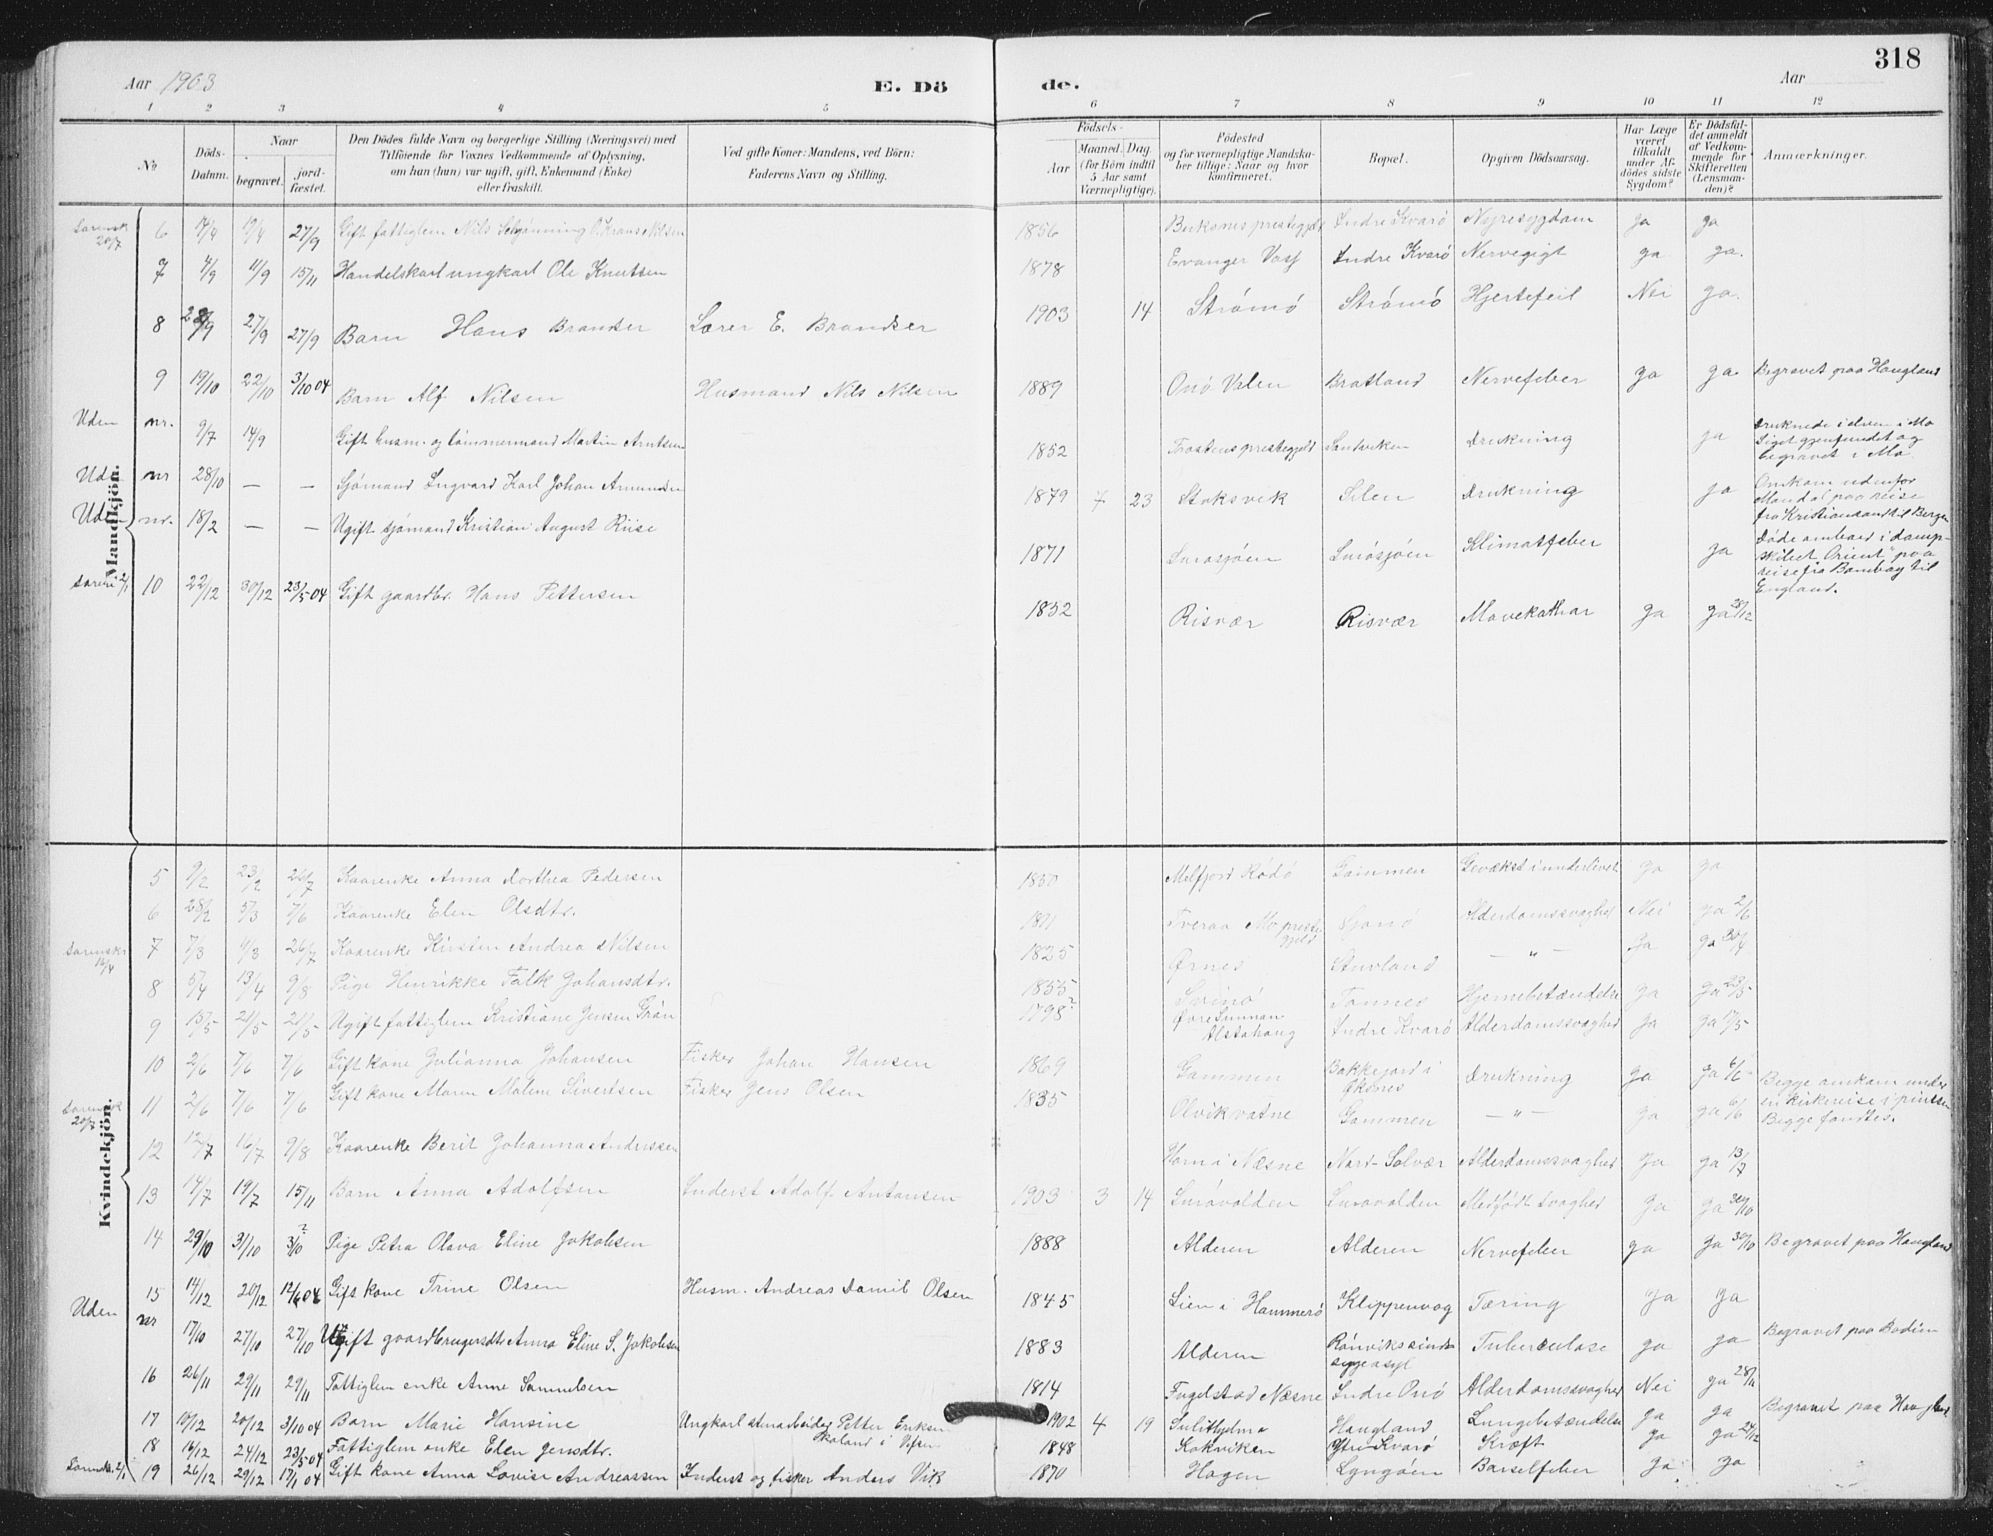 Aar 1903
E. Dö
de.
Aar
318
1 2 3 4 5 6 7 8 9 10 11 12
No
Döds-
Datum.
Naar
begravet.
jord-
fæstet.
Den Dödes fulde Navn og borgerlige Stilling (Næringsvei) med
Tilföiende for Voxnes Vedkommende af Oplysning,
om han (hun) var ugift, gift, Enkemand (Enke)
eller fraskilt.
Ved gifte Koner: Mandens, ved Börn:
Faderens Navn og Stilling.
Födsels-
Aar
Maaned. Dag.
(for Börn indtil
5 Aar samt
Værnepligtige).
Födested
og for værnepligtige Mandska-
ber tillige: Naar og hvor
konfirmeret.
Bopæl.
Opgiven Dödsaarsag.
Har Læge
været
tilkaldt
under Af-
dödes sidste
Sygdom?
Er Dödsfal-
det anmeldt
af Vedkom-
mende for
Skifteretten
(Lensman-
den)?
Anmærkninger.
Mandkjön.
6 14/4 19/4 27/9 Gift fattiglem Nils Schjønning 1856 Buksnes prestegjeld Indre Kvarø Nyresygdom ja ja
7 4/9 11/9 15/11 Handelskarl ungkarl Ole Knutsen 1878 Evanger Voss Indre Kvarø Nervegigt ja ja.
8 27/9 27/9 Barn Hans Brandser Lærer E. Brandser 1903 14 Strømø Strømø Hjertefeil Nei ja.
9 19/10 22/10 3/10 04 Barn Alf Nilsen Husmand Nils Nilsen 1889 Onø Valen Bratland Nervefeber ja ja Begravet paa Haugland
Uden nr. 9/7 14/9 Gift husm. og tømmermand Martin Arntsen 1852 prestegjeld Sandviken Drukning ja Druknede i elven i Mo
Liget gjenfundet og
begravet i Mo.
Uden nr 28/10 — — Sjømand Ingvard Karl Johan Amundsen 1879 7 23 Stoksvik Selen Drukning ja Omkom udenfor
Mandal paa reise
fra Kristiansand til Bergen
Uden nr. 18/2 — — Ugift sjømand Kristian August Riise 1871 Lurøsjøen Lurøsjøen Klimatfeber ja Døde ombord i damp-
skibet "Orient" paa
reise fra Bombay til
England.
10 22/12 30/12 23/5 04 Gift gaardbr. Hans Pettersen 1852 Risvær Risvær Mavekathar ja ja 28/12
Kvindekjön.
5 9/2 23/2 26/7 Kaarenke Anna Dorthea Pedersen 1830 Melfjord Rødø Gammen Gevækst i underlivet ja ja
6 28/2 5/3 7/6 Kaarenke Elen Olsdtr. Tveraa Mo preste-
gjeld Sjonø Alderdomssvaghed Nei ja 2/6
7 7/3 11/3 26/7 Kaarenke Kirsten Andrea Nilsen 1825 Ørnes Stuvland — " — ja ja 30/4
8 5/4 13/4 9/8 Pige Henrikke Falk Johansdtr. 1855 Tonnes Hjernebetændelse ja ja 23/5
9 15/5 21/5 21/5 Ugift fattiglem Kristiane Jensen Grøn 1798? Alstahaug Indre Kvarø Alderdomssvaghed ja ja
10 2/6 7/6 7/6 Gift kone Julianna Johansen Fisker Johan Hansen 1869 Gammen Bakkejord i
Øksnes Drukning ja ja 6/6
11 2/6 7/6 7/6 Gift kone Maren Malene Sivertsen Fisker Jens Olsen 1835 Olvikvatne Gammen — " — ja ja 6/6 Begge omkom under
en kirkereise i pintsen
Begge fandtes.
12 12/7 16/7 9/8 Kaarenke Berit Johanna Andersen Horn i Næsne Nord-Solvær Alderdomssvaghed ja ja 13/7
13 14/7 19/7 15/11 Barn Anna Adolfsen Inderst Adolf Antonsen 1903 3 14 Lurøvolden Lurøvolden Medfødt svaghed ja ja 30/10
14 29/10 31/10 3/10? Pige Petra Olava Eline Jakobsen 1888 Alderen Alderen Nervefeber ja ja 30/10 Begravet paa Haugland
15 14/12 20/12 Gift kone Trine Olsen Husm. Andreas Daniel Olsen 1845 Lien i Hammerø Klippenvåg Tæring ja ja
Uden nr 17/10 27/10 27/10 Ugift gaardbrugersdtr. Anna Eline S. Jakobsen 1883 Alderen Rønviks sinds-
sygeasyl Tuberculose ja ja Begravet paa Bodin
16 26/11 29/11 29/11 Fattiglem enke Anne Samuelsen 1814 Fugelstad Næsne Indre Onø Alderdomssvaghed Nei ja 28/11
17 14/12 20/12 3/10 04 Barn Marie Hansine Ungkarl Petter Eriksen
1902 4 19 Sulitjelma Haugland Lungebetændelse ja ja Begravet paa Haugland
18 16/12 24/12 23/5 04 Fattiglem enke Elen Jensdtr. 1848 Kokviken Ytre Kvarø Kræft ja ja 24/12
19 26/12 29/12 17/1 04 Gift kone Anna Lovise Andreassen Inderst og fisker Anders Vik 1870 Hagen Lyngøen Barselfeber ja ja